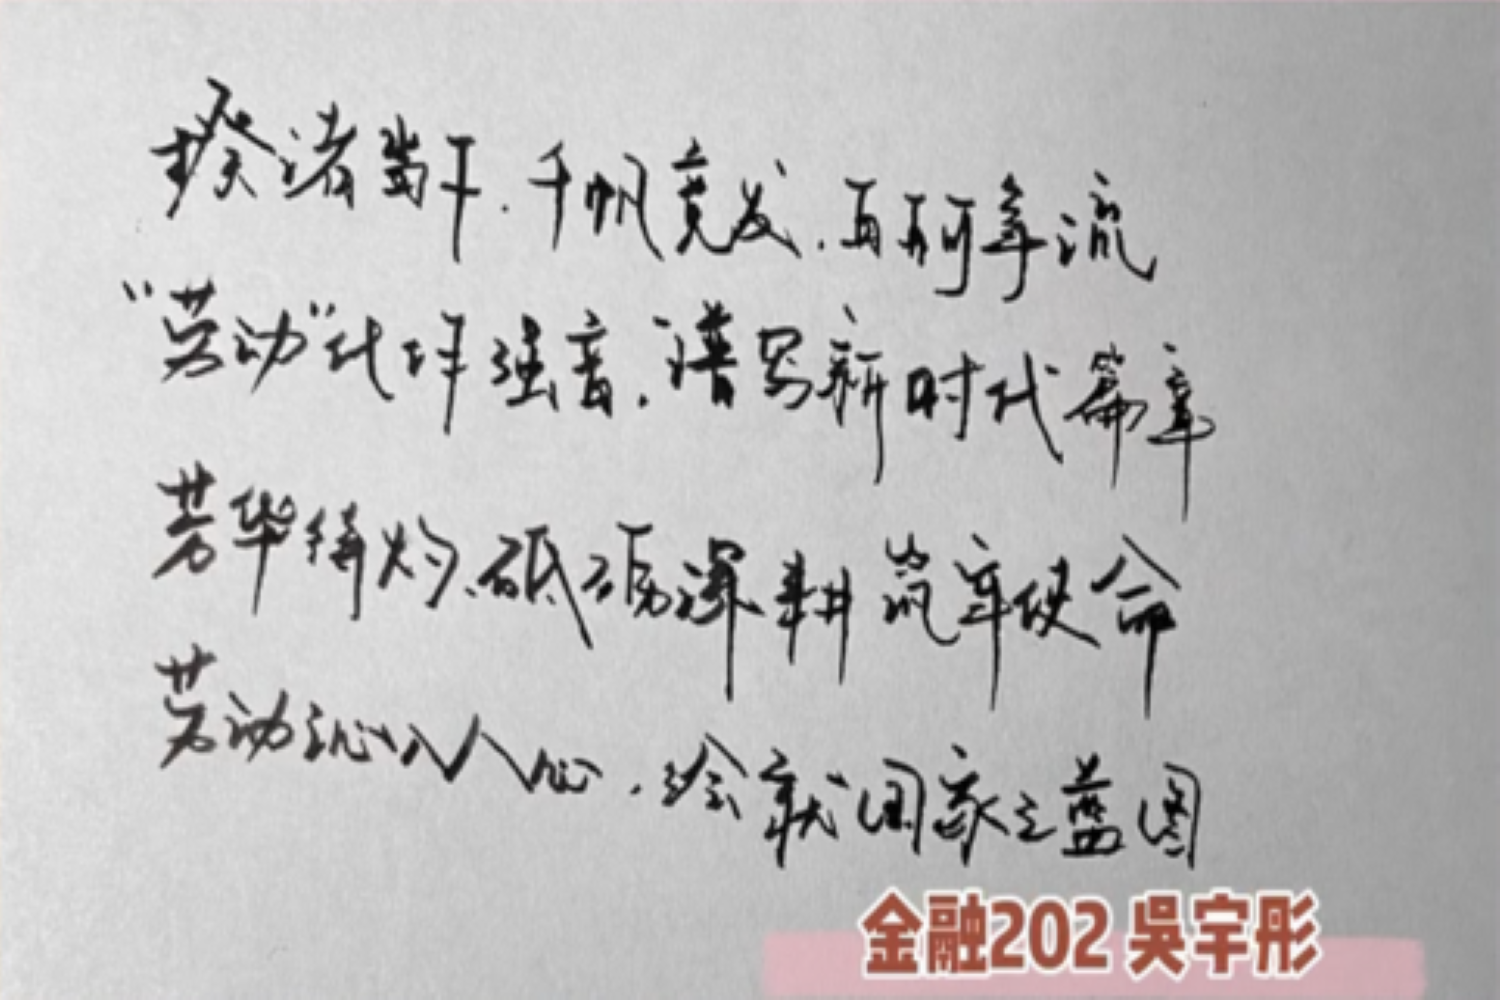 揆诸当下,千帆竞发,百舸争流
“劳动”化作强音,谱写新时代篇章
芳华待灼,砥砺深耕 筑牢使命
劳动沁入人心,绘就国家之蓝图
金融202 吳宇彤